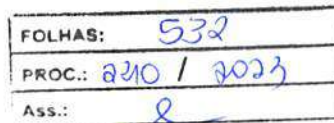 FOLHAS: 532
PROC.: 2210 / 2023
Ass.: